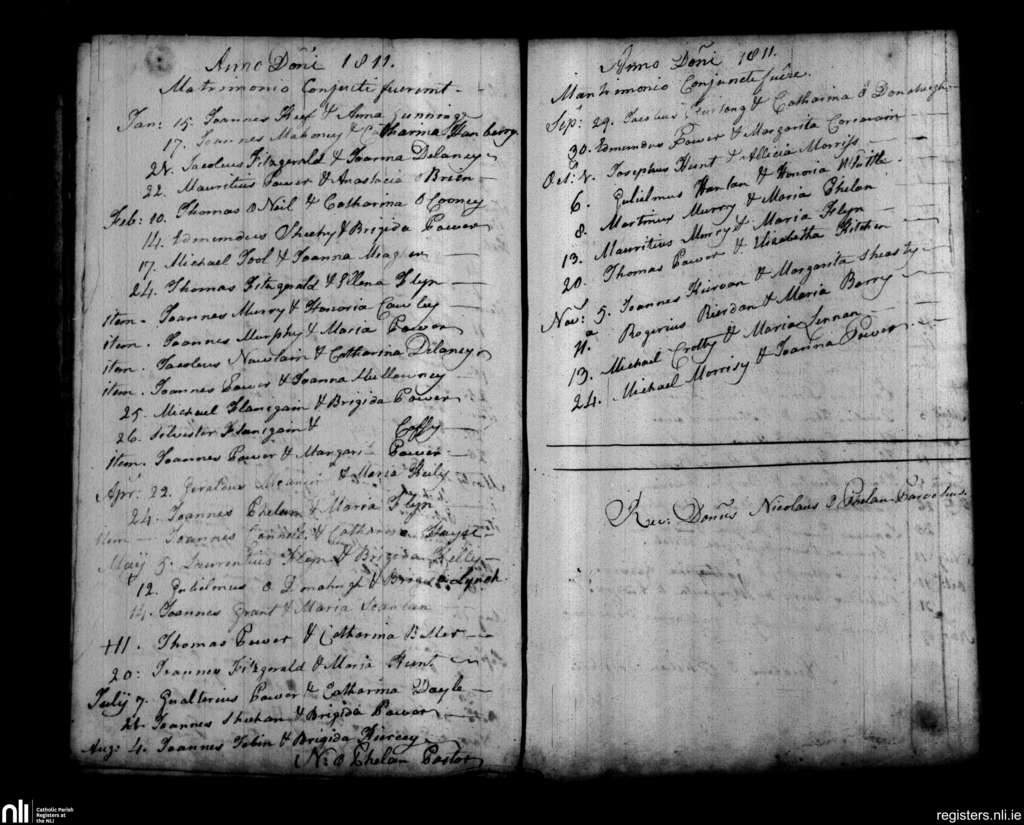 Anno Dom̃i 1811.
Matrimonio Conjuncti fuerunt
Jan: 15. Joannes Keef & Anna
17. Joannes Mahoney & Catharina Hanberry
21. Jacobus Fitzgerald & Joanna Delaney
22. Mauritius Power & Anastacia O Brien
Feb: 10. Thomas O Neil & Catharina O Cooney
14. Edmundus Sheehy & Brigida Power
17. Michael Tool & Joanna
24. Thomas Fitzgerald & Ellena Flyn
item. Joannes Murry & Honoria Cawley
item. Joannes Murphy & Maria Power
item. Jacobus & Catharina Delaney
item. Joannes Power & Joanna Mullowney
25. Michael Flanigain & Brigida Power
26. Silvester Flanigain &
item. Joannes Power & Margari Power
Apr: 22. Geraldus & Maria
24. Joannes Phelan & Maria Flyn
item Joannes Connell & Catharina
May 5. Laurentius & Brigida
12. Gulielmus O Donahugh & Brigida Lynch
14. Joannes Grant & Maria Scanlan
+11. Thomas Power & Catharina Butler
20: Joannes Fitzgerald & Maria Hunt
July 7. Gualterius Power & Catharina Dayle
21. Joannes Sheehan & Brigida Power
Aug: 4. Joannes Tobin & Brigida Piercey
Ns O Phelan Pastor
Anno Dom̃i 1811.
Matrimonio Conjuncti fuêre.
Sep: 29. Jacobus Furlong & Catharina O Donahugh
30. Edmundus Power & Margarita Corcoran
Oct: Josephus Hunt & Allicia Morriss
6. Gulielmus Hanlan & Honoria Whittle
8. Martinus Murry & Maria Phelan
13. Mauritius Murry & Maria Flyn
20. Thomas Power & Elizabetha Kitchen
Nov: 5. Joannes Kirwan & Margarita Sheasby
11. Rogerius Rierdan & Maria Barry
13. Michael Crotty & Maria Linnen
24. Michael Morrisy & Joanna Power
Rev: Dom̃us Nicolaus O Phelan Parochus.
nli
Catholic Parish
Registers at
the NLI
registers.nli.ie